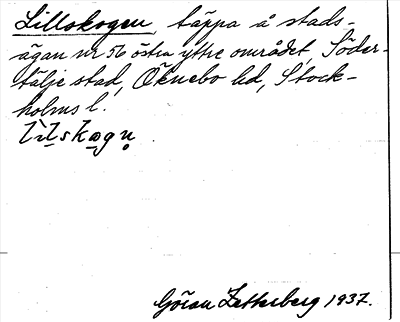 Lillskogen, täppa å stads-
ägan nr 56 östra yttre området, Söder-
tälje stad, Öknebo hd, Stock-
holms l.
Göran Zetterberg 1937.